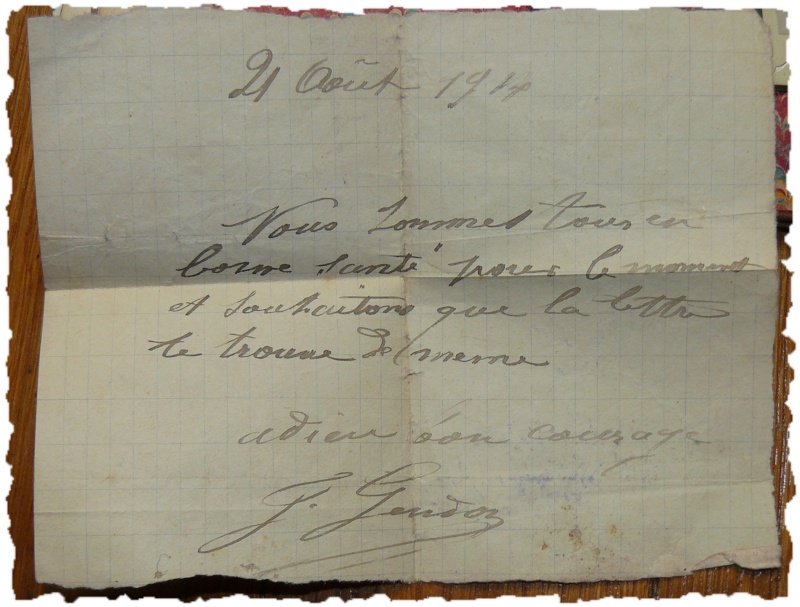 21 Août 1914
Nous sommes tous en
bonne santé pour le moment
et souhaitons que la lettre
te trouve de meme
adieu bon courage
J.